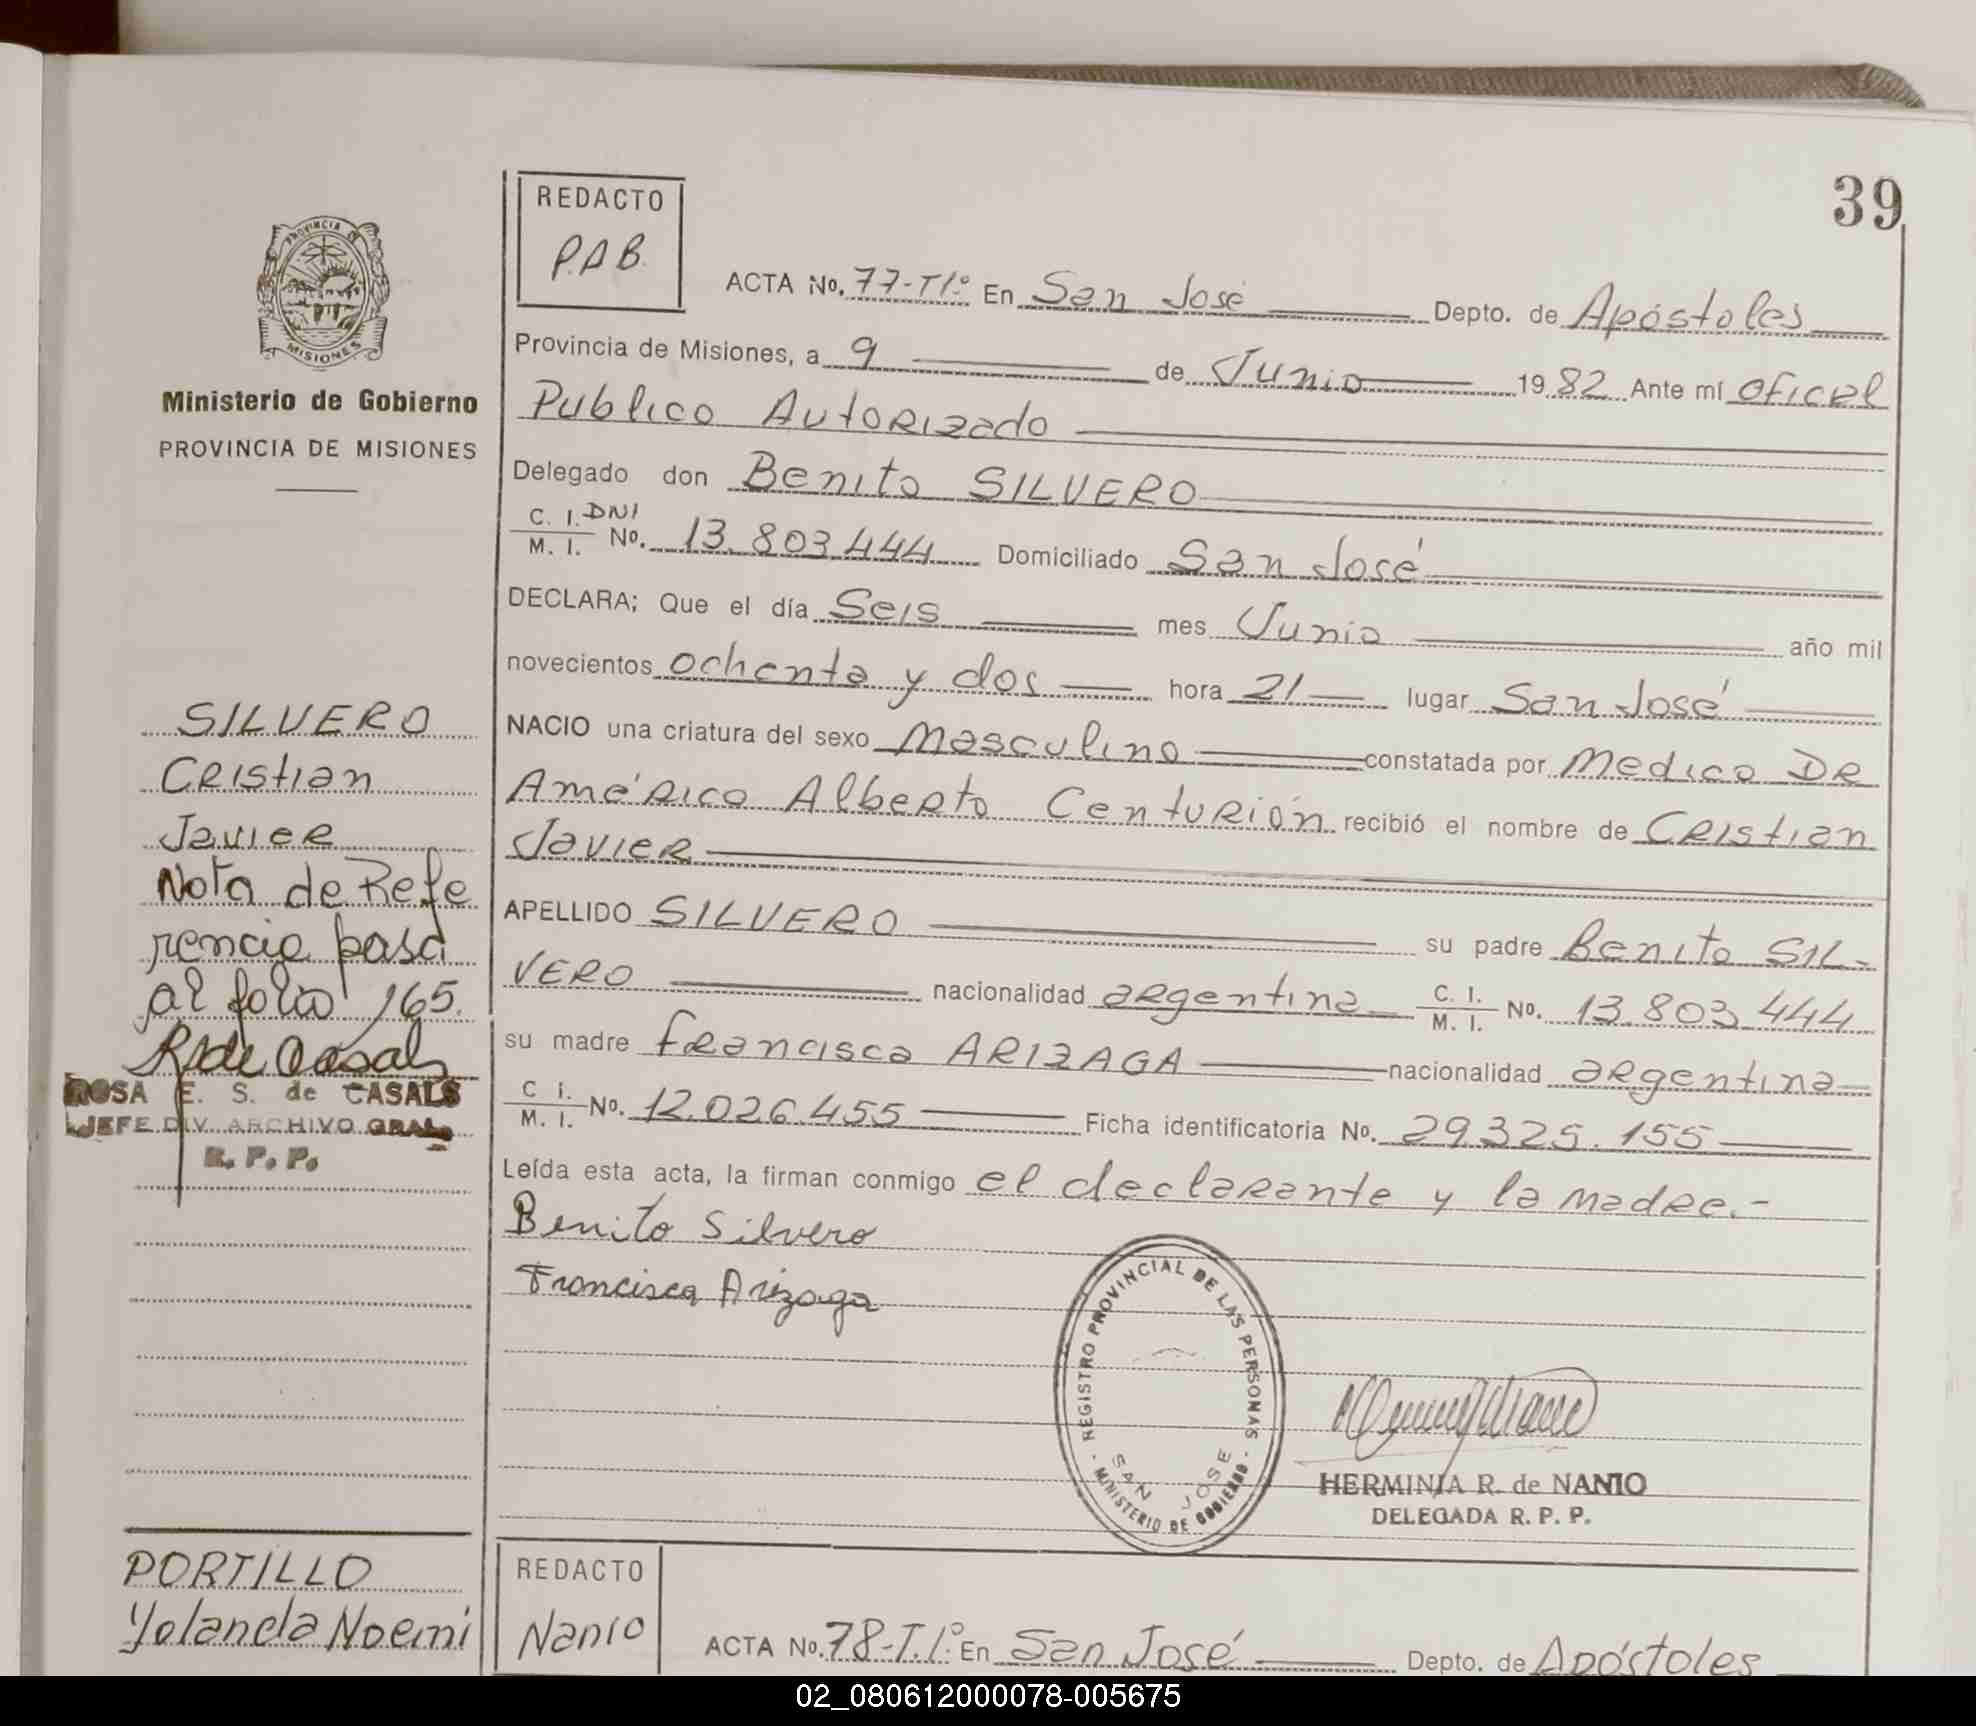 39
REDACTO
P.A.B.
PROVINCIA DE
MISIONES
Ministerio de Gobierno
PROVINCIA DE MISIONES
ACTA No. 77-TI.º En San José Depto. de Apóstoles
Provincia de Misiones, a 9 de Junio 1982 Ante mí Oficial
Publico Autorizado
Delegado don Benito SILVERO
C. I. DNI
M. I. No. 13.803.444 Domiciliado San José
DECLARA; Que el día Seis mes Junio año mil
novecientos ochenta y dos hora 21 lugar San José
NACIO una criatura del sexo Masculino constatada por Medico DR
Américo Alberto Centurión recibió el nombre de Cristian
Javier
APELLIDO SILVERO su padre Benito SIL-
VERO nacionalidad argentina C. I. M. I. No. 13.803.444
su madre Francisca ARIZAGA nacionalidad argentina
C. I. M. I. No. 12.026.455 Ficha identificatoria No. 29.325.155
Leída esta acta, la firman conmigo el declarante y la madre.-
Benito Silvero
Francisca Arizaga
SILVERO
Cristian
Javier
Nota de Refe
rencia pasa
al folio 165.
R de Casals
ROSA E. S. de CASALS
JEFE DIV. ARCHIVO GRAL.
R. P. P.
REGISTRO PROVINCIAL DE LAS PERSONAS
SAN JOSE
MINISTERIO DE GOBIERNO
HERMINIA R. de NANIO
DELEGADA R. P. P.
PORTILLO
Yolanda Noemi
REDACTO
Nanio
ACTA No. 78-T.I.º En San José Depto. de Apóstoles
02_080612000078-005675